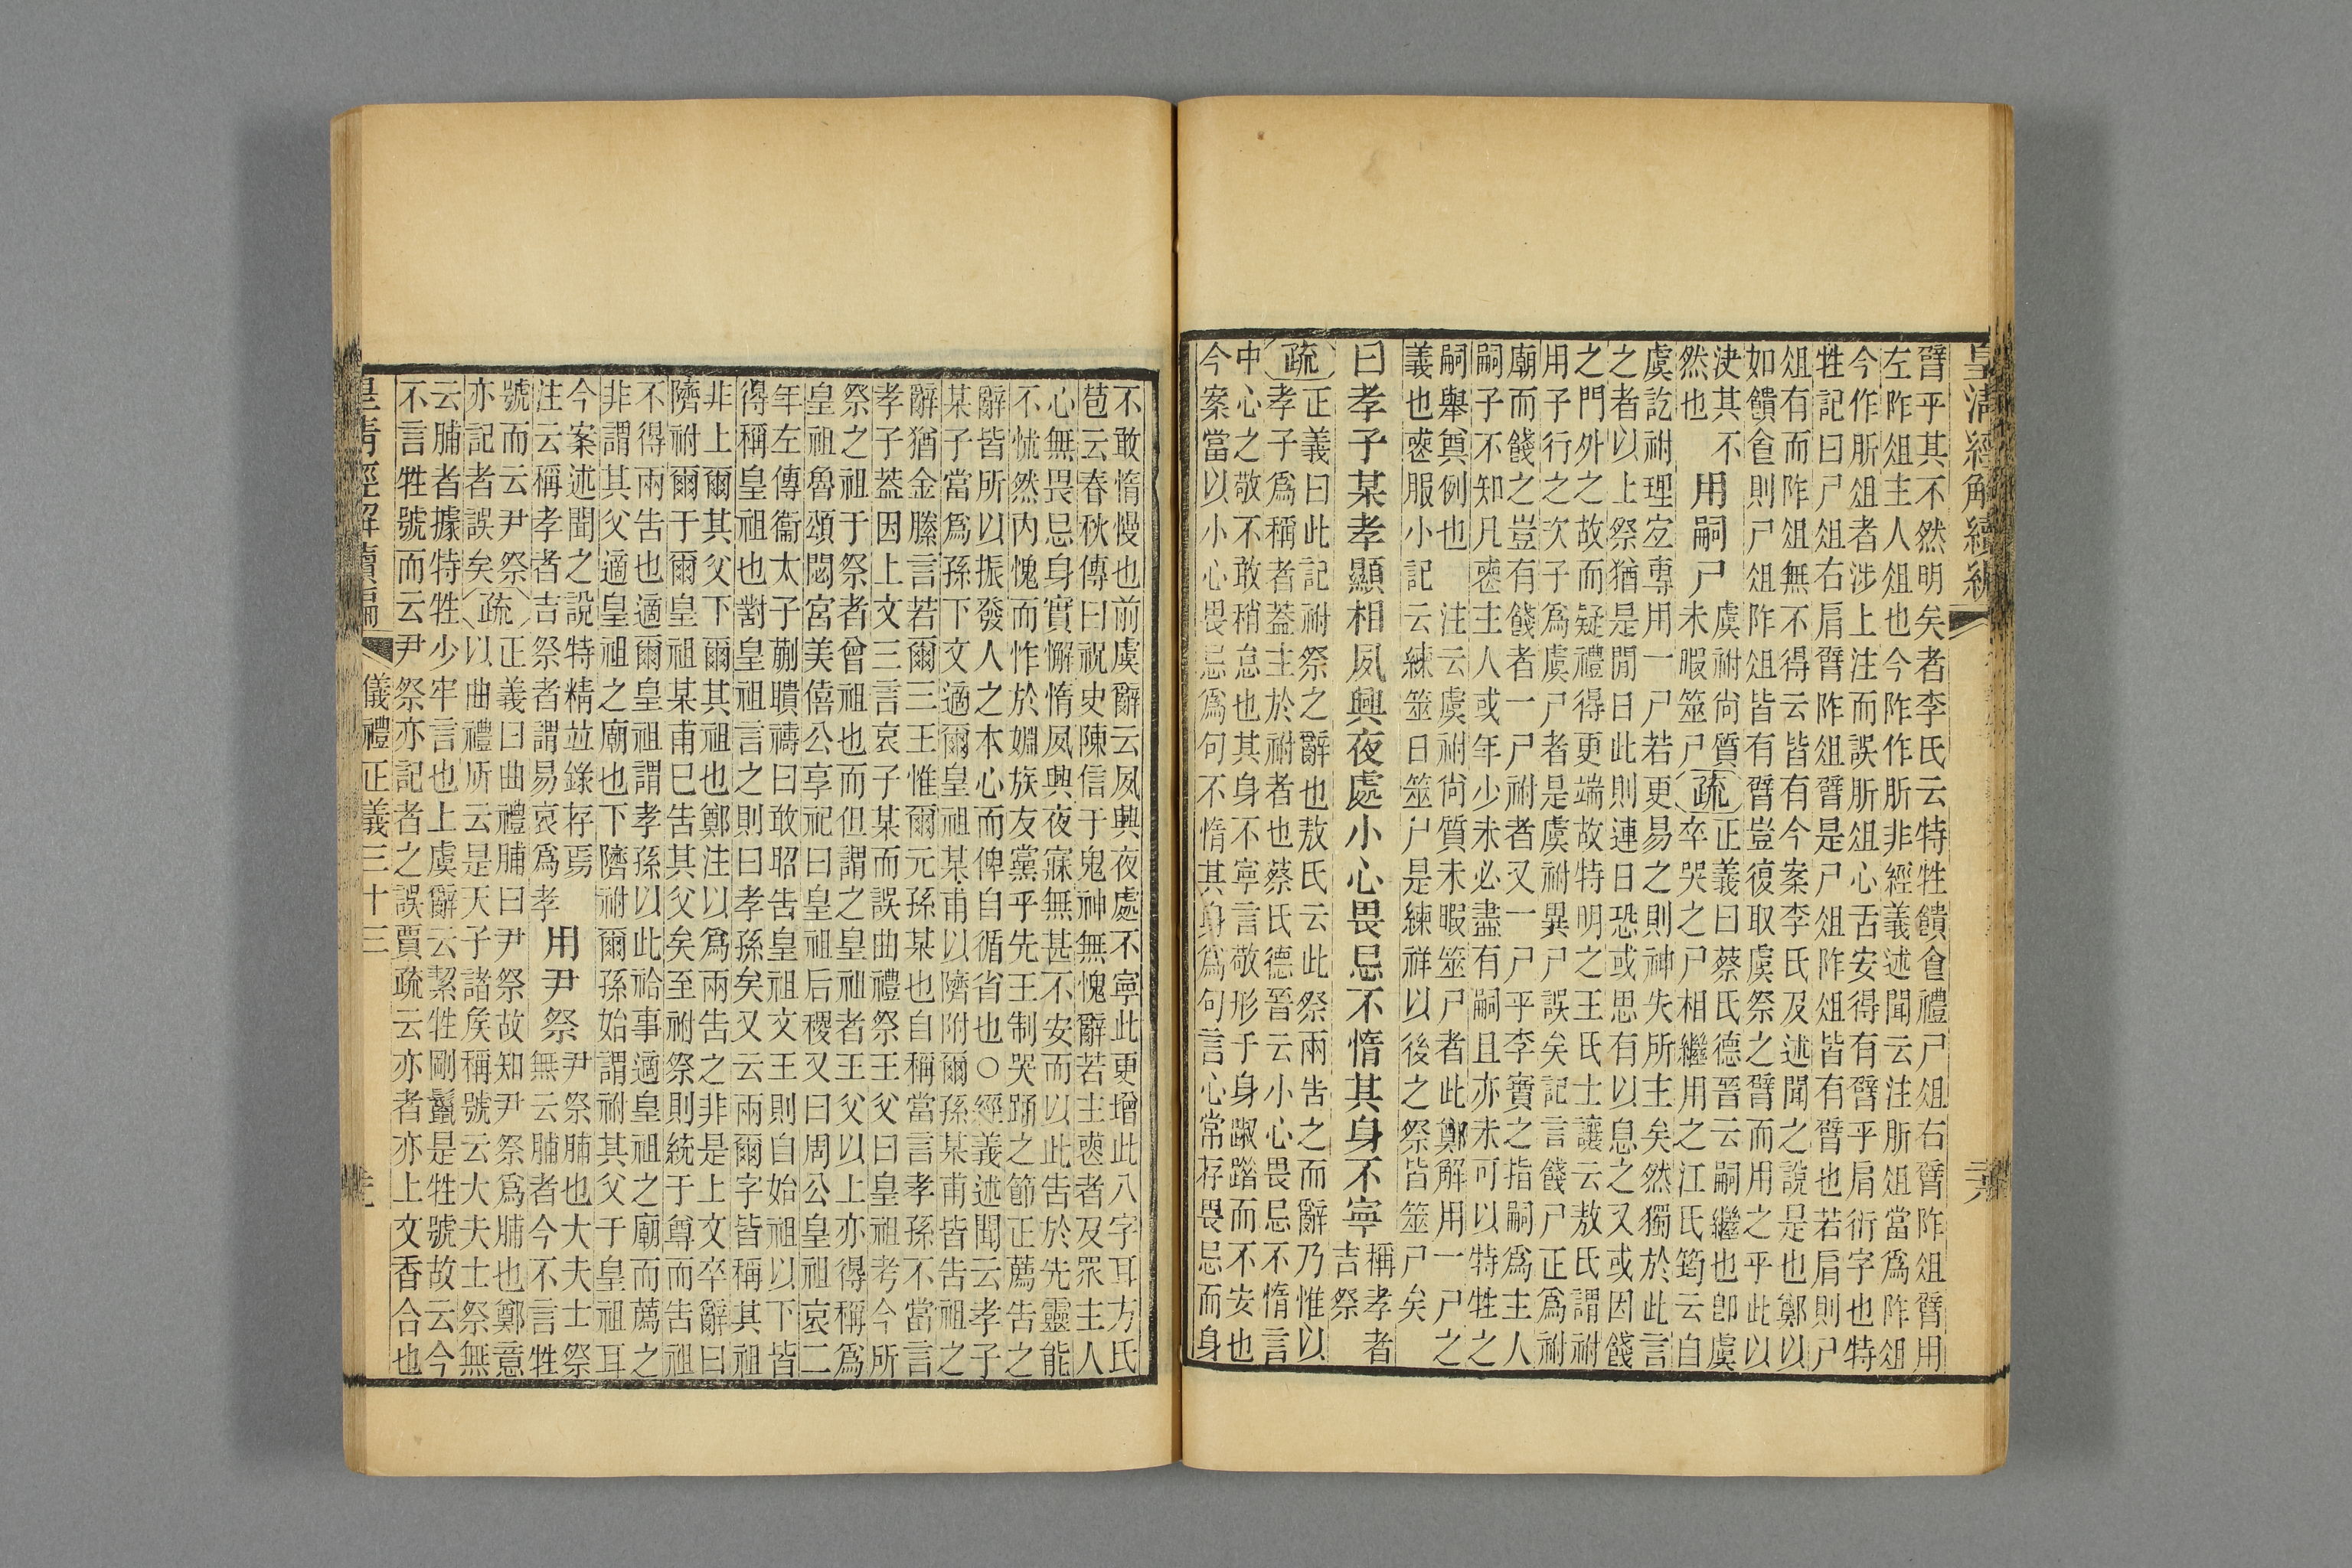 皇清經解續編
臂乎其不然明矣者李氏云特牲饋食禮尸俎右臂阼俎臂用
左阼俎主人俎也今阼作肵非經義述聞云注肵俎當爲阼俎
今作肵俎者涉上注而誤肵俎心舌安得有臂乎肩衍字也特
牲記曰尸俎右肩臂阼俎臂是尸俎阼俎皆有臂也若肩則尸
俎有而阼俎無不得云皆有今案李氏及述聞之說是也鄭以
如饋食則尸俎阼俎皆有臂豈復取虞祭之臂而用之乎此以
決其不
然也
用嗣尸
虞祔尚質
未暇筮尸
疏
正義曰蔡氏德晉云嗣繼也卽虞
卒哭之尸相繼用之江氏筠云自
虞訖祔理宐專用一尸若更易之則神失所主矣然獨於此言
之者以上祭猶是閒日此則連日恐或思有以息之又或因餞
之門外之故而疑禮得更端故特明之王氏士讓云敖氏謂祔
用子行之次子爲虞尸者是虞祔異尸誤矣記言餞尸正爲祔
廟而餞之豈有餞者一尸祔者又一尸乎李寶之指嗣爲主人
嗣子不知凡喪主人或年少未必盡有嗣且亦未可以特牲之
嗣舉奠例也 注云虞祔尚質未暇筮尸者此鄭解用一尸之
義也喪服小記云練筮日筮尸是練祥以後之祭皆筮尸矣
曰孝子某孝顯相夙興夜處小心畏忌不惰其身不寧
稱孝者
吉祭
疏
正義曰此記祔祭之辭也敖氏云此祭兩告之而辭乃惟以
孝子爲稱者蓋主於祔者也蔡氏德晉云小心畏忌不惰言
中心之敬不敢稍怠也其身不寧言敬形于身踧踖而不安也
今案當以小心畏忌爲句不惰其身爲句言心常存畏忌而身
不敢惰慢也前虞辭云夙興夜處不寧此更增此八字耳方氏
苞云春秋傳曰祝史陳信于鬼神無愧辭若主喪者及眾主人
心無畏忌身實懈惰夙興夜寐無甚不安而以此告於先靈能
不怵然內愧而怍於姻族友黨乎先王制哭踊之節正薦告之
辭皆所以振發人之本心而俾自循省也○經義述聞云孝子
某子當爲孫下文適爾皇祖某甫以隮附爾孫某甫皆告祖之
辭猶金縢言若爾三王惟爾元孫某也自稱當言孝孫不當言
孝子葢因上文三言哀子某而誤曲禮祭王父曰皇祖考今所
祭之祖于祭者曾祖也而但謂之皇祖者王父以上亦得稱爲
皇祖魯頌閟宮美僖公享祀曰皇祖后稷又曰周公皇祖哀二
年左傳衞太子蒯聵禱曰敢昭告皇祖文王則自始祖以下皆
得稱皇祖也對皇祖言之則曰孝孫矣又云兩爾字皆稱其祖
非上爾其父下爾其祖也鄭注以爲兩告之非是上文卒辭曰
隮祔爾于爾皇祖某甫巳告其父矣至祔祭則統于尊而告祖
不得兩告也適爾皇祖謂孝孫以此祫事適皇祖之廟而薦之
非謂其父適皇祖之廟也下隮祔爾孫始謂祔其父于皇祖耳
今案述聞之說特精竝錄存焉
注云稱孝者吉祭者謂易哀爲孝
用尹祭
尹祭脯也大夫士祭
無云脯者今不言牲
號而云尹祭
亦記者誤矣
疏
正義曰曲禮脯曰尹祭故知尹祭爲脯也鄭意
以曲禮所云是天子諸矦稱號云大夫士祭無
云脯者據特牲少牢言也上虞辭云絜牲剛鬣是牲號故云今
不言牲號而云尹祭亦記者之誤賈疏云亦者亦上文香合也
皇清經解續編
儀禮正義三十三